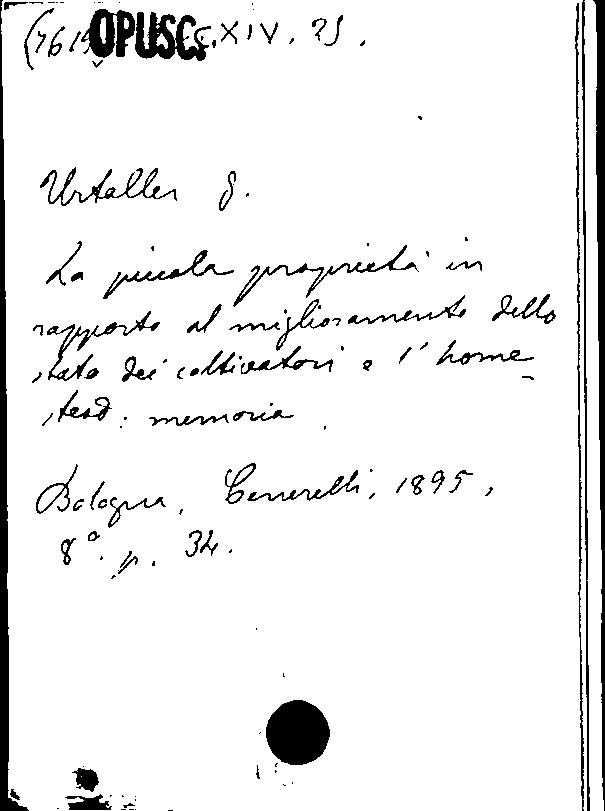 (7619 OPUSC. XIV. 25.
Urtoller G.
La piccola proprietà in
rapporto al miglioramento dello
stato dei coltivatori e l'home-
stead: memoria
Bologna, Cenerelli, 1895,
8°. p. 34.